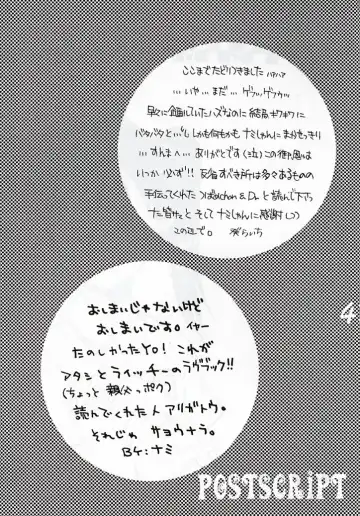 ここまでたどりつきました ハァハァ
…いや…まだ…ゲフッ、ゲフゥッ
早々に企画していたハズなのに結局ギリギリに
バタバタと…しかも何もかもナミしゃんにまかせっきり
…すんまへ…ありがとです(泣)この御恩は
いつか必ず!!反省すべき所は多々あるものの
手伝ってくれた &Dr.と読んで下さっ
た皆サマとそしてナミしゃんに感謝
この辺で。
おしまいじゃないけど
おしまいです。イャー
たのしかったYO!これが
アタシとライッチーのラヴブック!!
(ちょっと親父ッポク)
読んでくれた人アリガトウ。
それじゃ サヨウナラ。
BY:ナミ
4
POSTSCRiPT